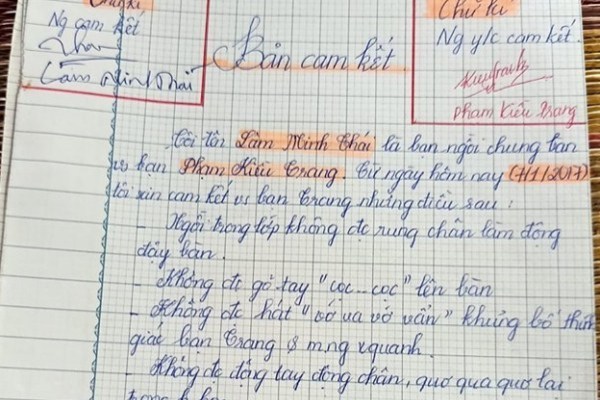 Chữ kí
Ng cam kết
Lâm Minh Thái
Chữ kí
Ng y/c cam kết.
Phạm Kiều Trang
Bản cam kết
Tôi tên Lâm Minh Thái là bạn ngồi chung bàn
vs bạn Phạm Kiều Trang. Từ ngày hôm nay (7/1/2017)
tôi xin cam kết vs bạn Trang những điều sau :
- Ngồi trong lớp không đc rung chân làm động
đậy bàn.
- Không đc gõ tay "cọc_cọc" lên bàn
- Không đc hát "vớ va vớ vẩn" khủng bố thính
giác bạn Trang & m.ng xquanh.
- Không đc động tay động chân, quơ qua quơ lại